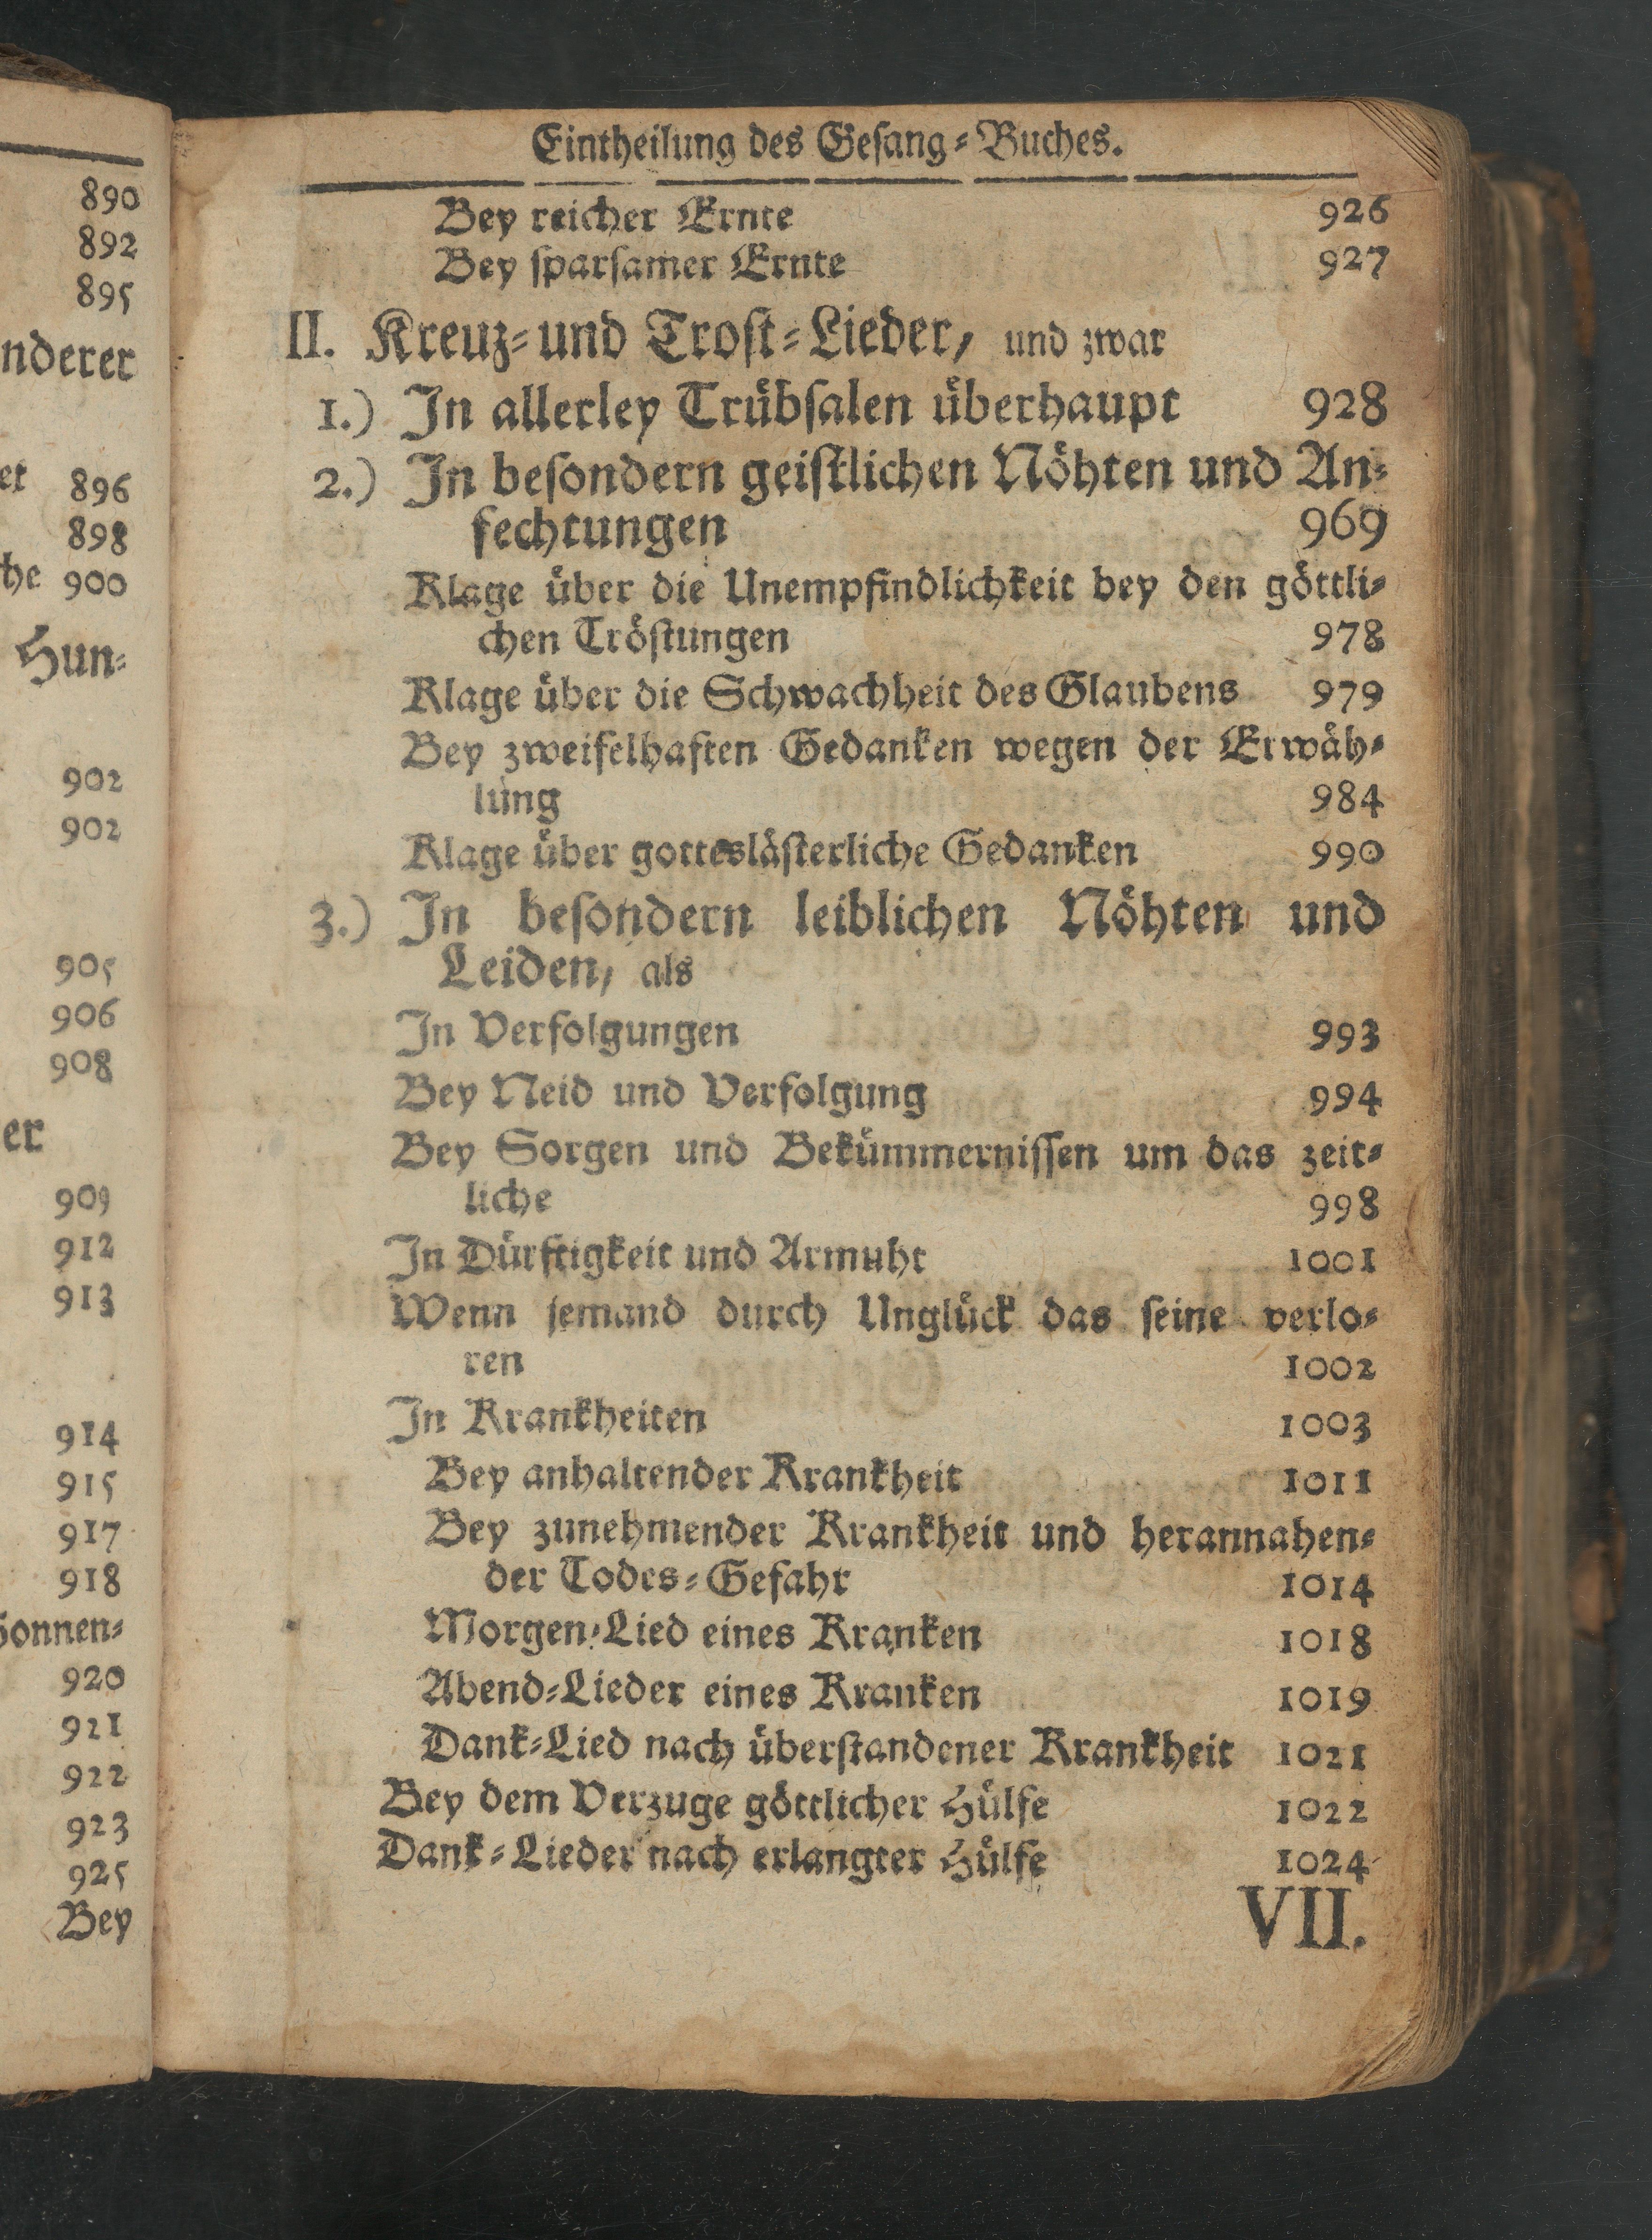 890
892
895
nderer
896
898
he 900
Hun⸗
902
902
905
906
908
er
909
912
913
914
915
917
918
onnen⸗
920
921
922
923
925
Bey
Eintheilung des Geſang⸗Buches.
Bey reicher Ernte 926
Bey ſparſamer Ernte 927
II. Kreuz⸗und Troſt⸗Lieder, und zwar
1.) In allerley Trübſalen überhaupt 928
2.) In beſondern geiſtlichen Nöhten und An⸗
fechtungen 969
Klage über die Unempfindlichkeit bey den göttli⸗
chen Tröſtungen 978
Klage über die Schwachheit des Glaubens 979
Bey zweifelhaften Gedanken wegen der Erwäh⸗
lung 984
Klage über gottesläſterliche Gedanken 990
3.) In beſondern leiblichen Nöhten und
Leiden, als
In Verfolgungen 993
Bey Neid und Verfolgung 994
Bey Sorgen und Bekümmerniſſen um das zeit⸗
liche 998
In Dürftigkeit und Armuht 1001
Wenn jemand durch Unglück das ſeine verlo⸗
ren 1002
In Krankheiten 1003
Bey anhaltender Krankheit 1011
Bey zunehmender Krankheit und herannahen⸗
der Todes⸗Gefahr 1014
Morgen⸗Lied eines Kranken 1018
Abend⸗Lieder eines Kranken 1019
Dank⸗Lied nach überſtandener Krankheit 1021
Bey dem Verzuge göttlicher Hülfe 1022
Dank⸗Lieder nach erlangter Hülfe 1024
VII.